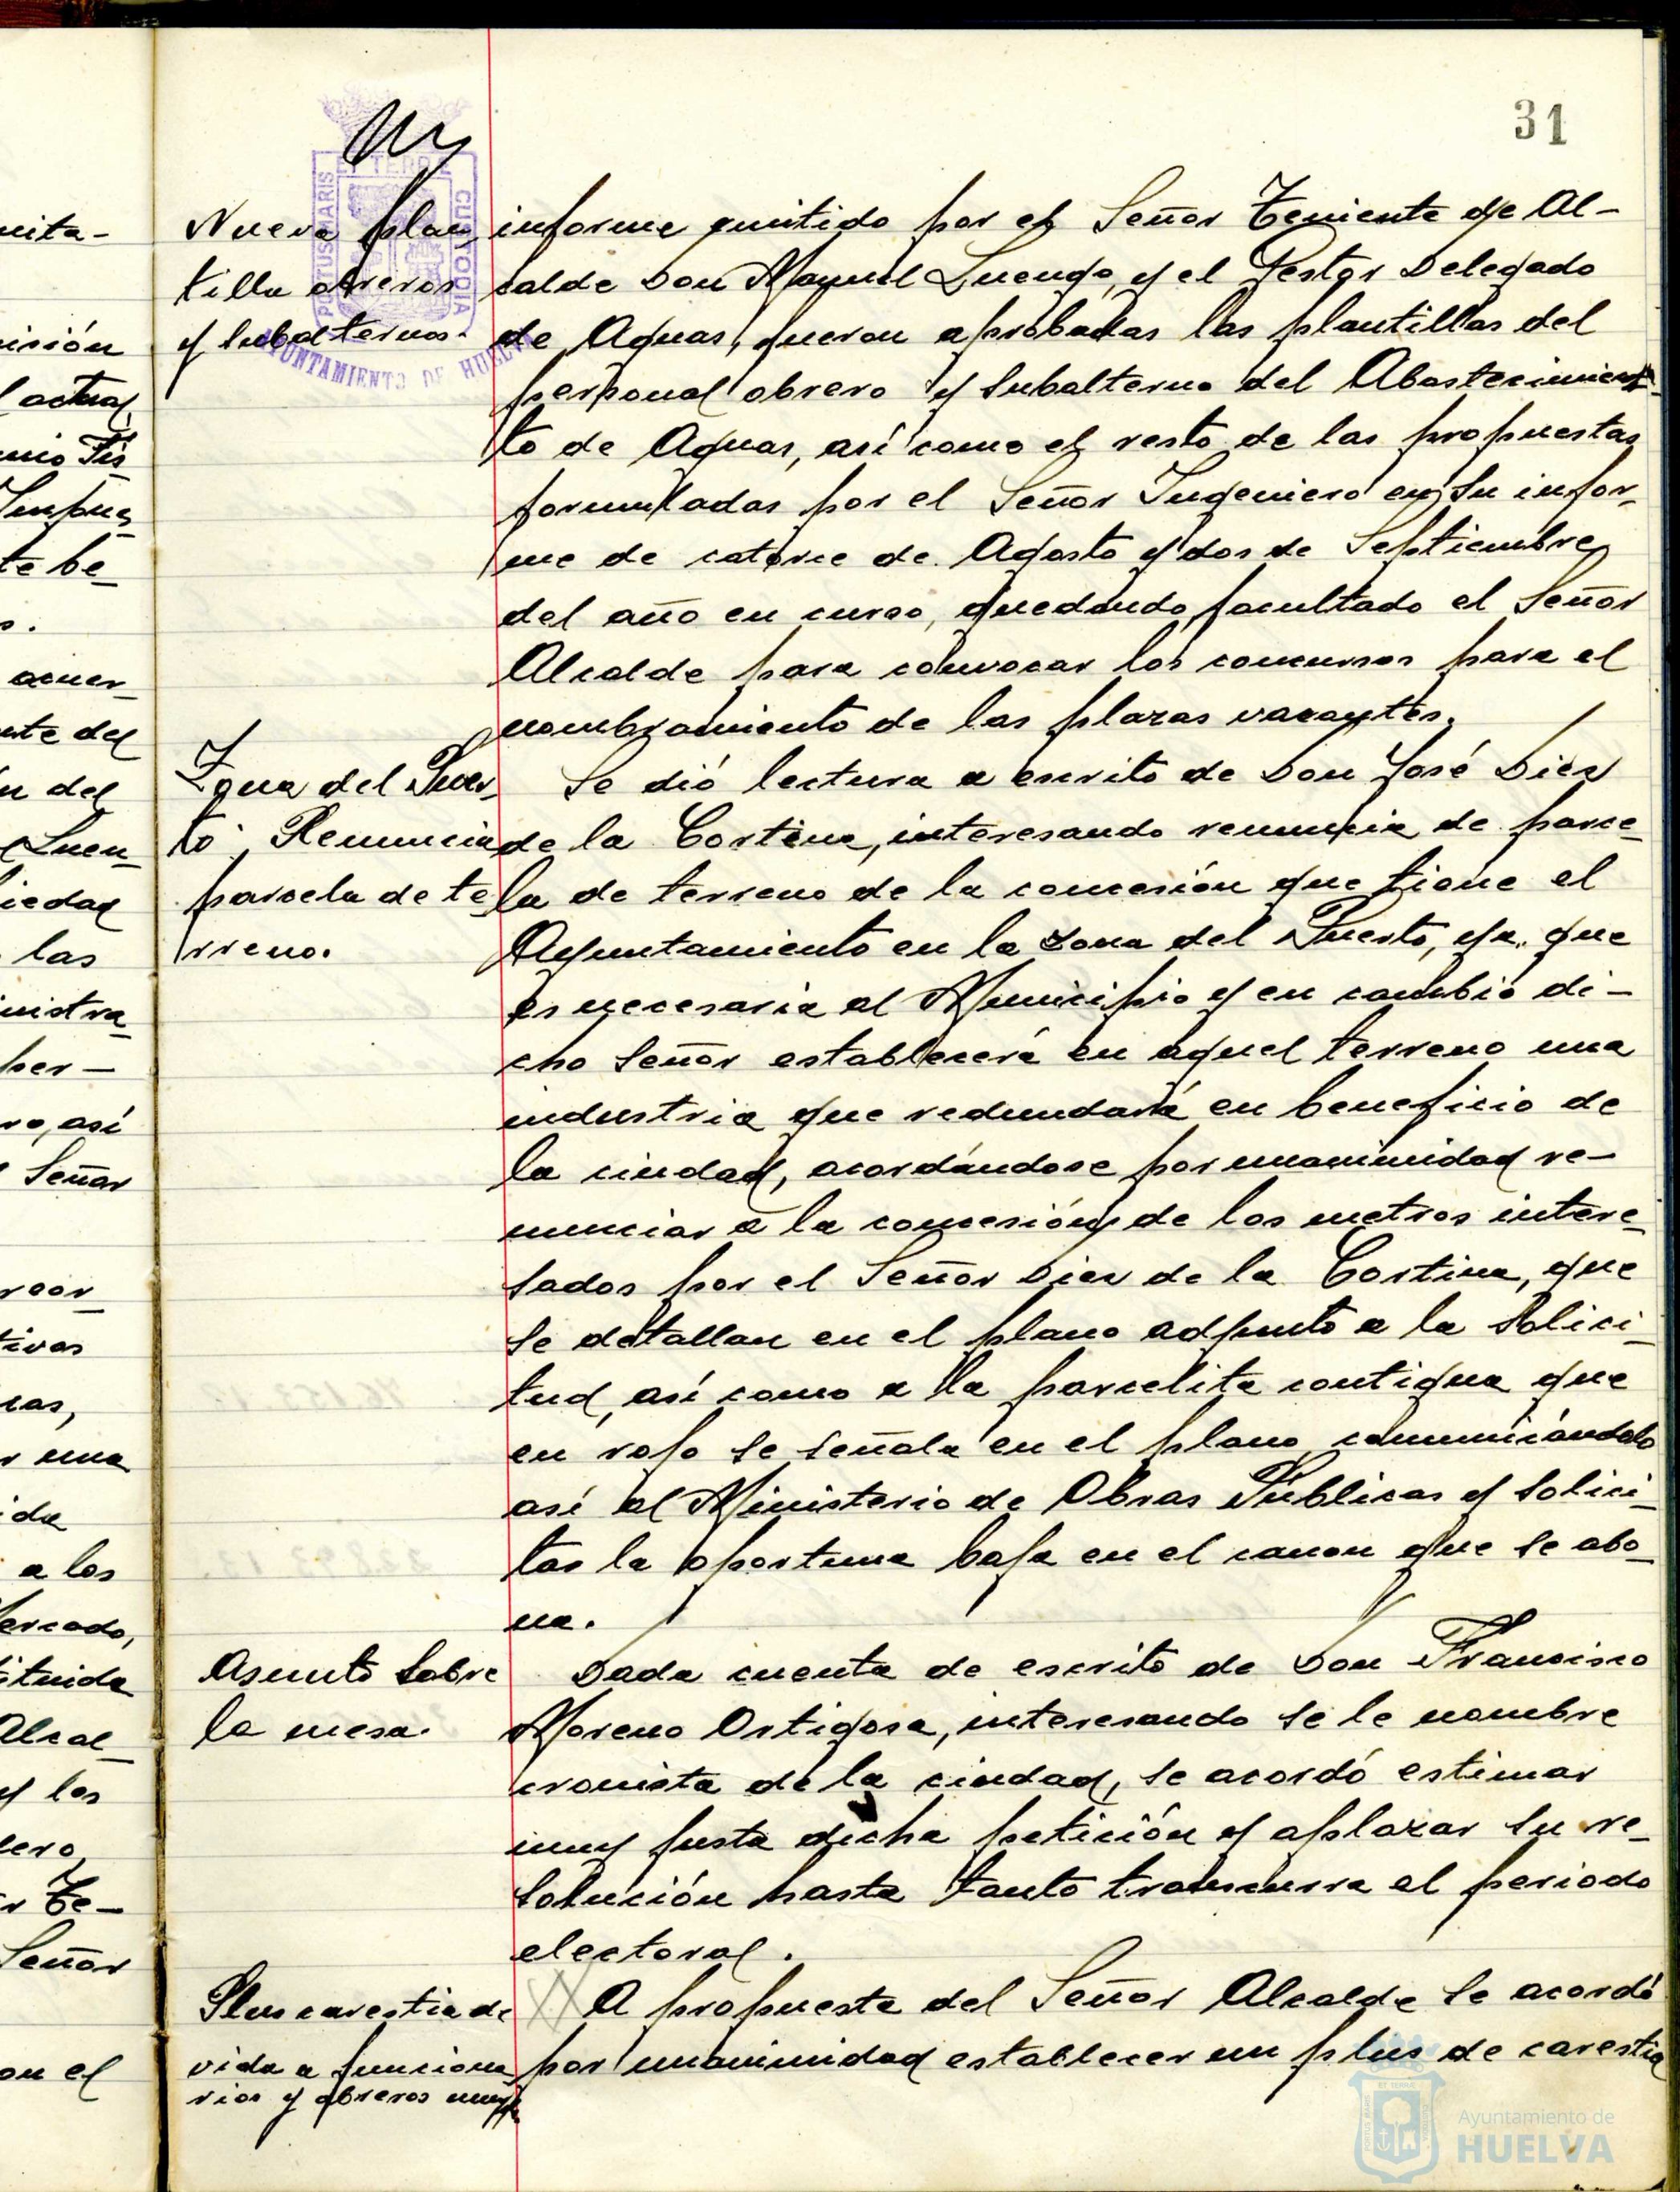 31
PORTUS MARIS ET TERRE CUSTODIA
AYUNTAMIENTO DE HUELVA
Nueva plan-
tilla obreros
y subalternos.
informe emitido por el Señor Teniente de Al-
calde Don Manuel Luengo, y el Gestor Delegado
de Aguas, fueron aprobadas las plantillas del
personal obrero y subalterno del Abastecimien-
to de Aguas, así como el resto de las propuestas
formuladas por el Señor Ingeniero en su infor-
me de catorce de Agosto y dos de Septiembre
del año en curso, quedando facultado el Señor
Alcalde para convocar los concursos para el
nombramiento de las plazas vacantes.
Zona del Puer-
to. Renuncia
parcela de te-
rreno.
Se dió lectura a escrito de Don José Diez
de la Cortina, interesando renuncia de parce-
la de terreno de la concesión que tiene el
Ayuntamiento en la zona del Puerto, ya que
es necesaria al Municipio y en cambio di-
cho Señor establecerá en aquel terreno una
industria que redundará en beneficio de
la ciudad, acordándose por unanimidad re-
nunciar a la concesión de los metros intere-
sados por el Señor Diez de la Cortina, que
se detallan en el plano adjunto a la solici-
tud, así como a la parcelita contigua que
en rojo se señala en el plano, comunicándolo
así al Ministerio de Obras Públicas y solici-
tar la oportuna baja en el canon que se abo-
na.
Asunto sobre
la mesa.
Dada cuenta de escrito de Don Francisco
Moreno Ortigosa, interesando se le nombre
cronista de la ciudad, se acordó estimar
muy justa dicha petición y aplazar su re-
solución hasta tanto transcurra el periodo
electoral.
Plus carestia de
vida a funciona-
rios y obreros
A propuesta del Señor Alcalde se acordó
por unanimidad establecer un plus de carestia
mita-
isión
actual
te be-
acuer-
ente del
n del
Luen-
iedad
las
nistra-
per-
ro, así
Señor
tivos
cas,
r una
ida
a los
ercado,
tituida
Alcal-
y los
lero
r Te-
Señor
on el
Ayuntamiento de
HUELVA